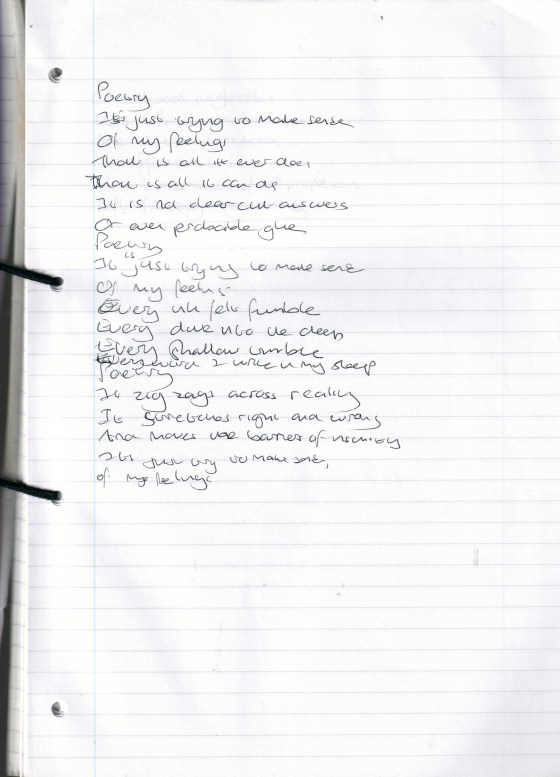 Poetry
It is just trying to make sense
Of my feelings
That is all it ever does
That is all it can do
It is not clear cut answers
Or even probable
Poetry
It is just trying to make sense
Of my feelings
Every felt fumble
Every dive into the deep
Every shallow
Every word I write in my sleep
Poetry
It zig zags across reality
It stretches right and wrong
And moves the barriers of
Its just try to make sense,
of my feelings